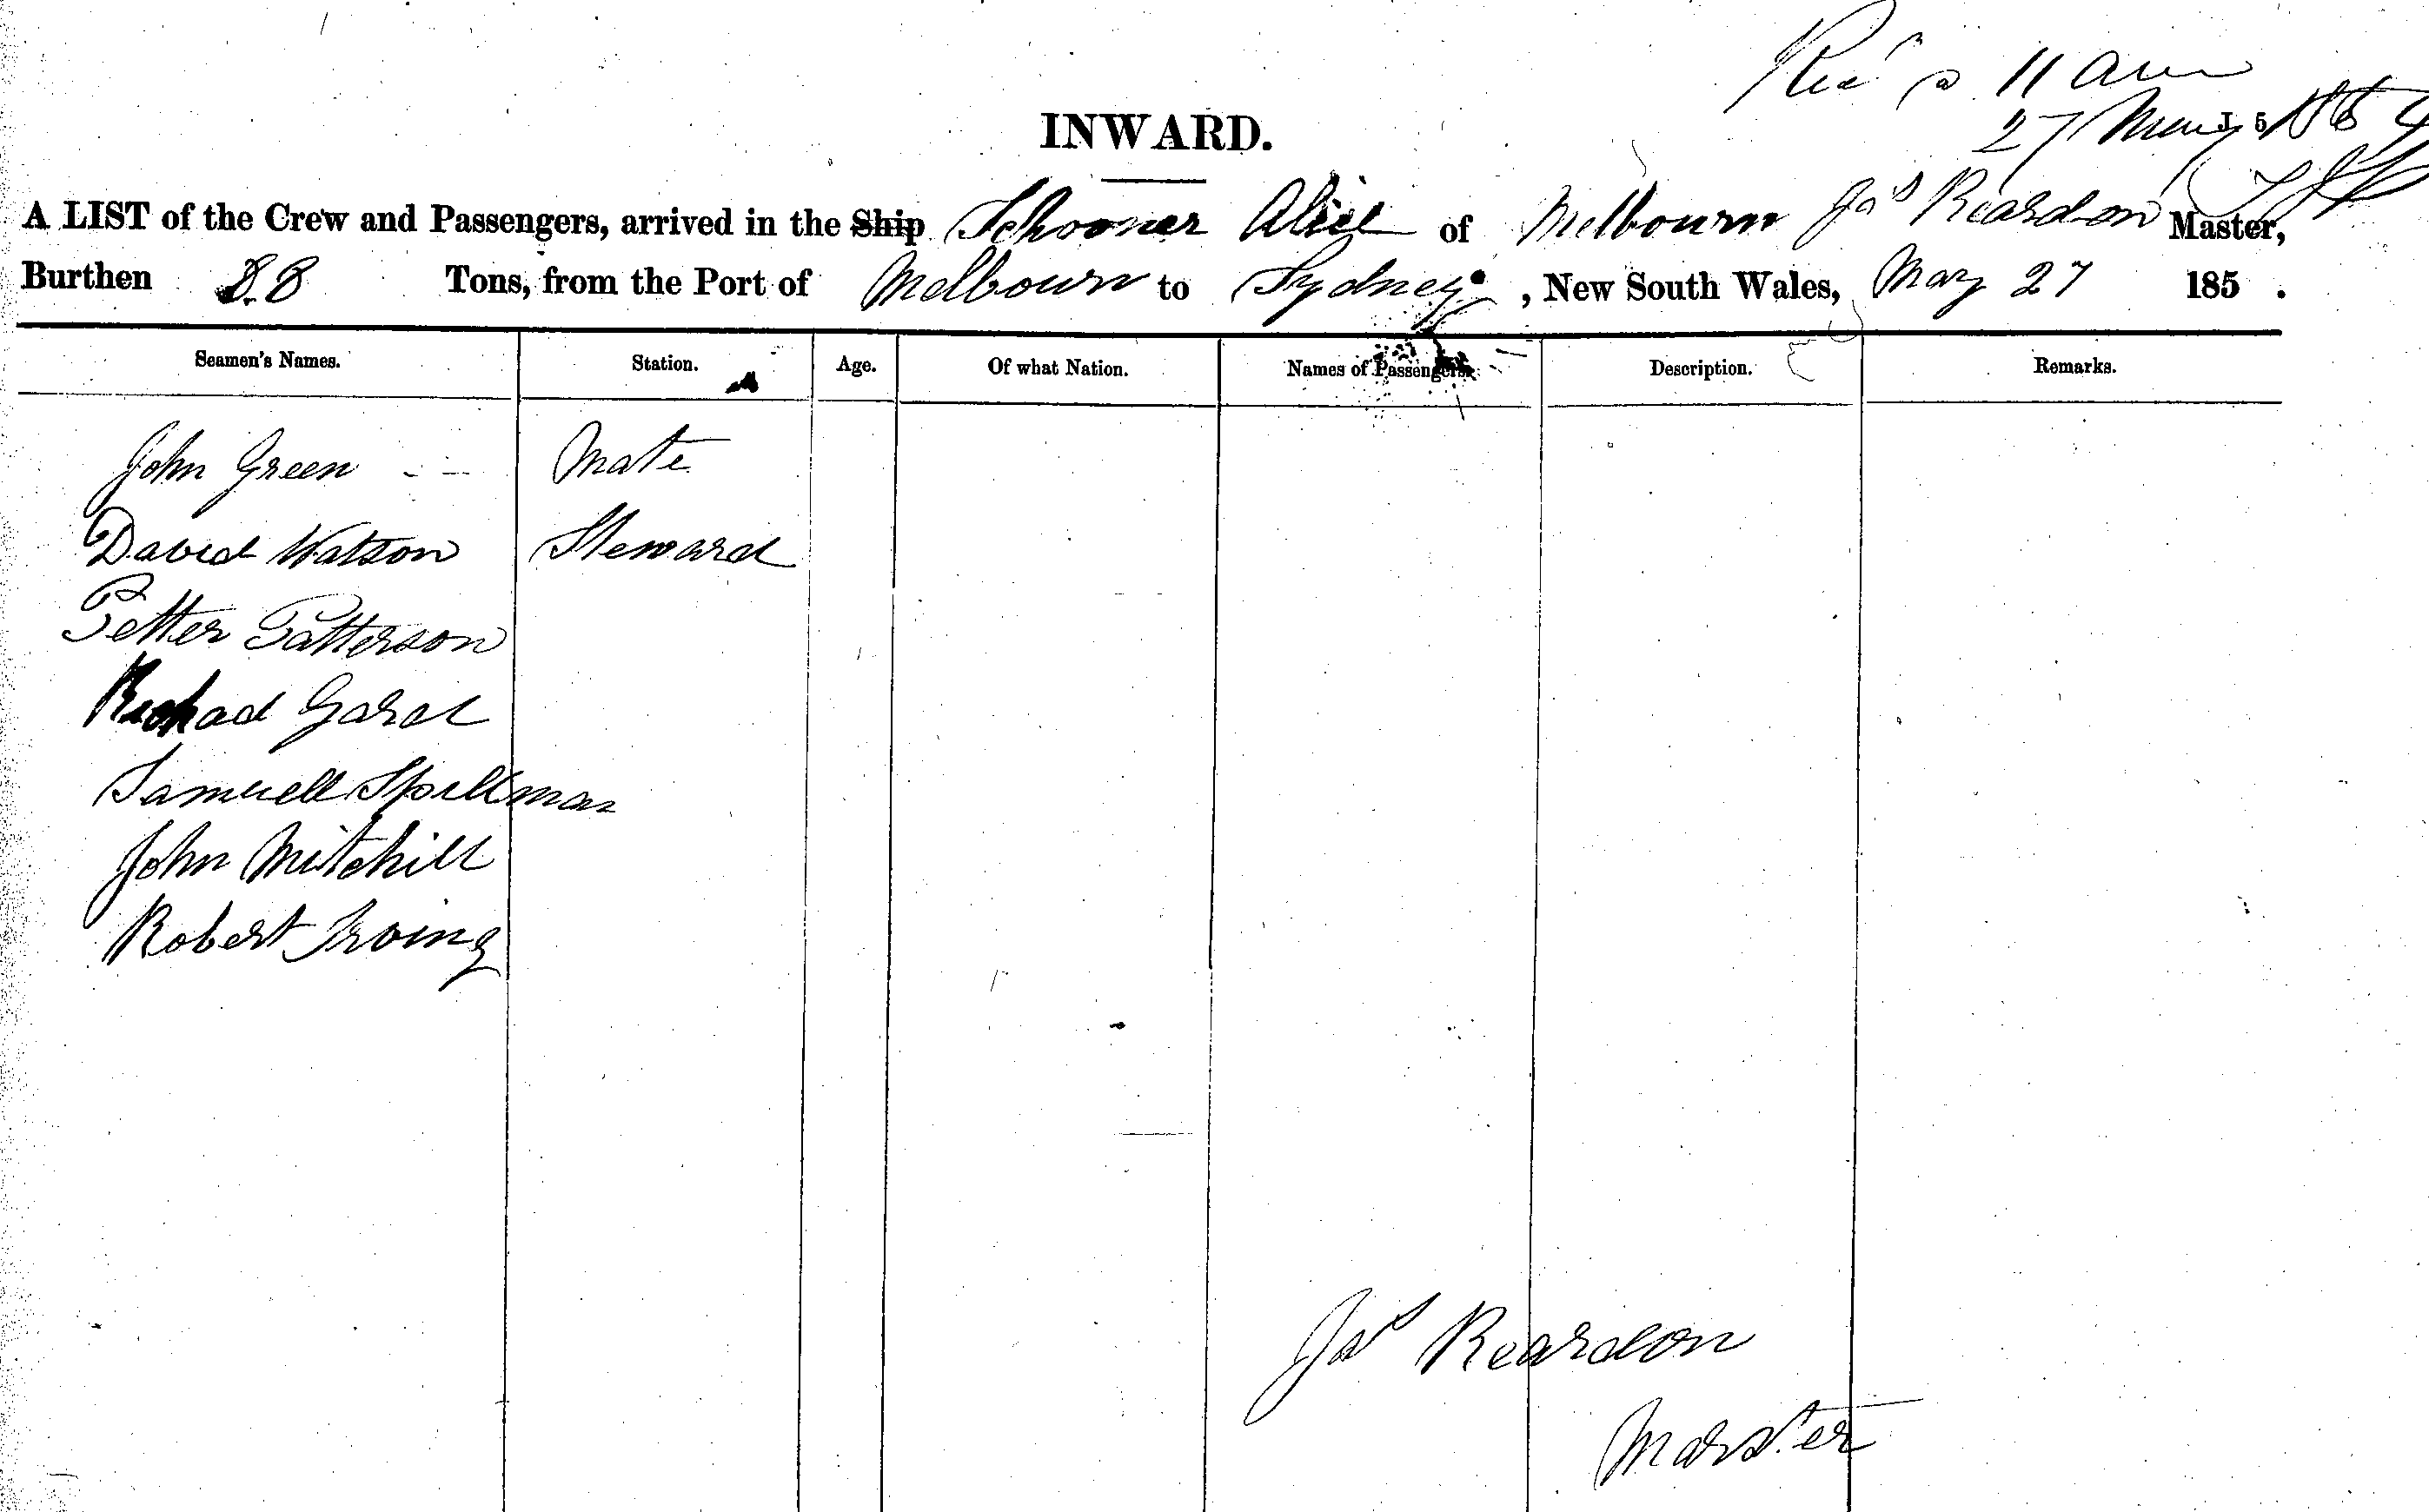 Rec'd @ 11 am
27 May 1854
INWARD.
A LIST of the Crew and Passengers, arrived in the Ship Schooner Alice of Melbourn Jas Reardon Master,
Burthen 88 Tons, from the Port of Melbourn to Sydney, New South Wales, May 27 185 .
Seamen's Names. Station. Age. Of what Nation. Names of Passengers. Description. Remarks.
John Green - - Mate
David Watson Steward
Petter Patterson
Richad
Samuell Spillman
John Mitchill
Robert Irving
Jas Reardon
Marster